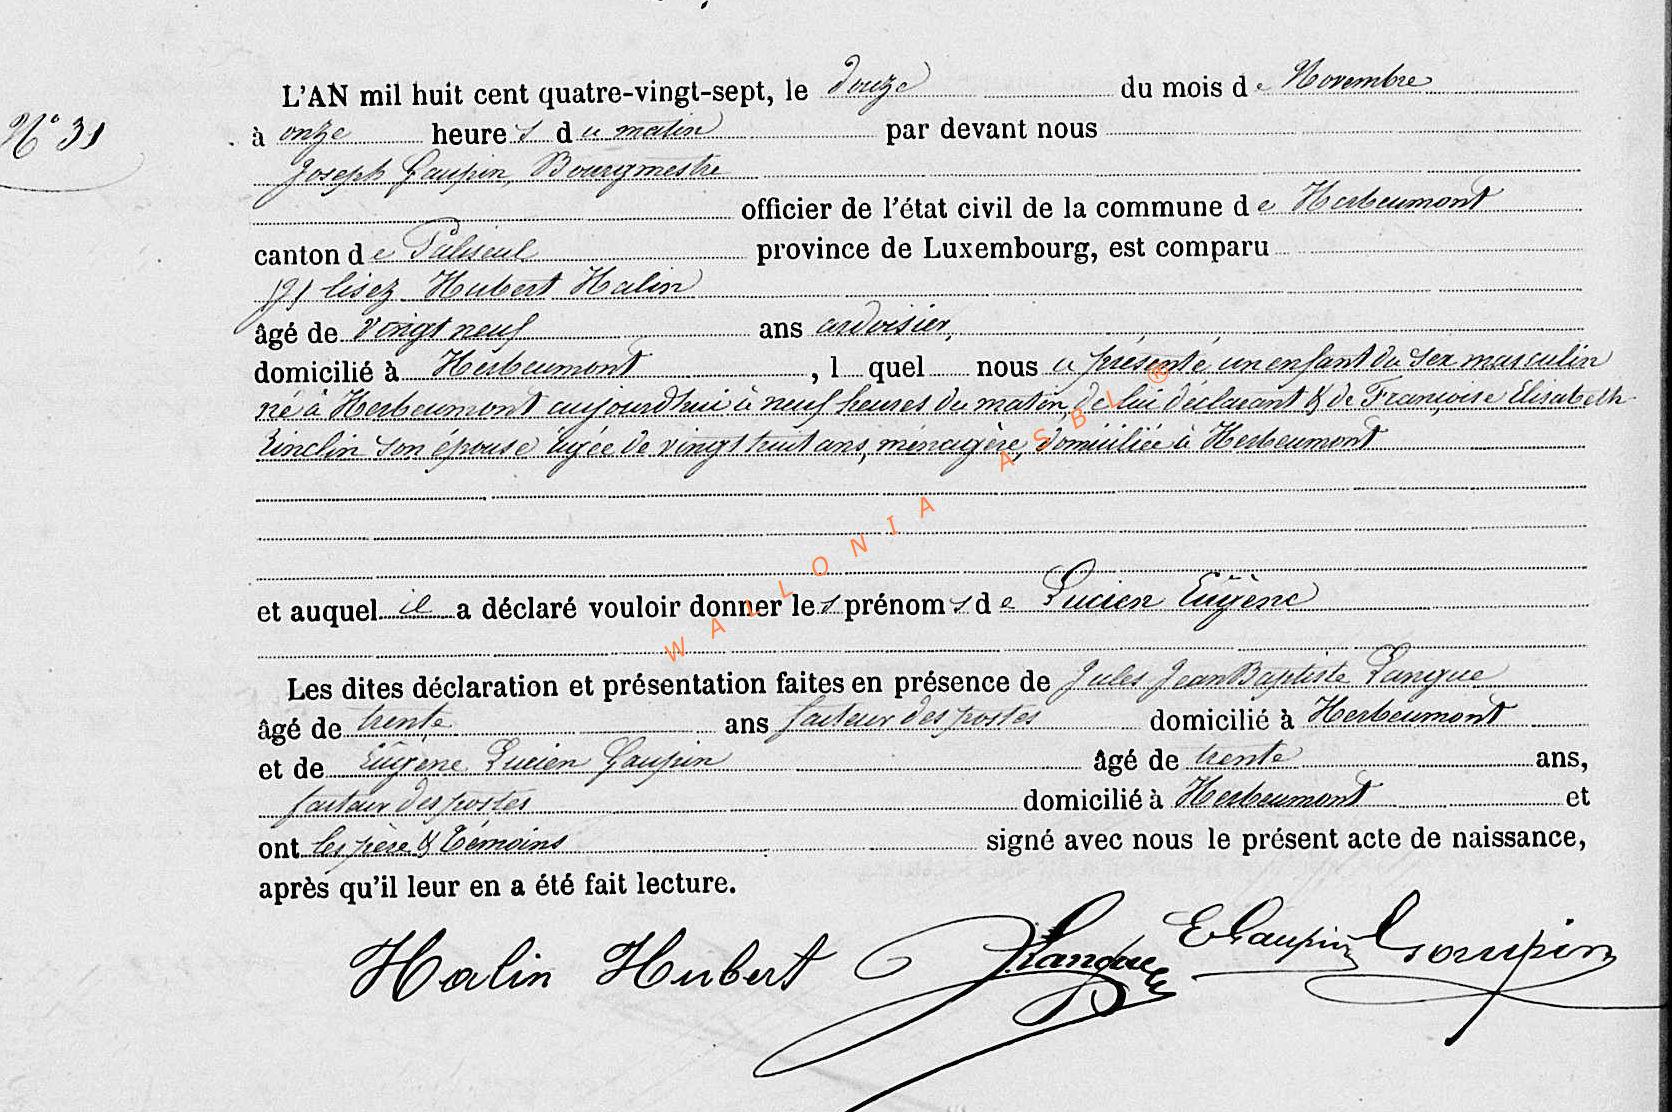 L'AN mil huit cent quatre-vingt-sept, le douze du mois de Novembre
N° 31
à onze heures du matin par devant nous
Joseph Gaupin, Bourgmestre
officier de l'état civil de la commune de Herbeumont
canton de Paliseul province de Luxembourg, est comparu
lisez Hubert Halin
âgé de vingt neuf ans ardoisier,
domicilié à Herbeumont, l quel nous a présenté un enfant du sex masculin
né à Herbeumont aujourdhui à neuf heures du matin, de lui déclarant & de Françoise Elisabeth
son épouse âgée de vingt huit ans, ménagère, domiciliée à Herbeumont
et auquel il a déclaré vouloir donner les prénoms de Lucien Eugène
Les dites déclaration et présentation faites en présence de Jules Jean Baptiste Langue
âgé de trente ans facteur des postes domicilié à Herbeumont
et de Eugène Lucien Gaupin âgé de trente ans,
facteur des postes domicilié à Herbeumont et
ont les père & témoins signé avec nous le présent acte de naissance,
après qu'il leur en a été fait lecture.
Halin Hubert JLangue E Gaupin Goupin
WALLONIA ASBL ®